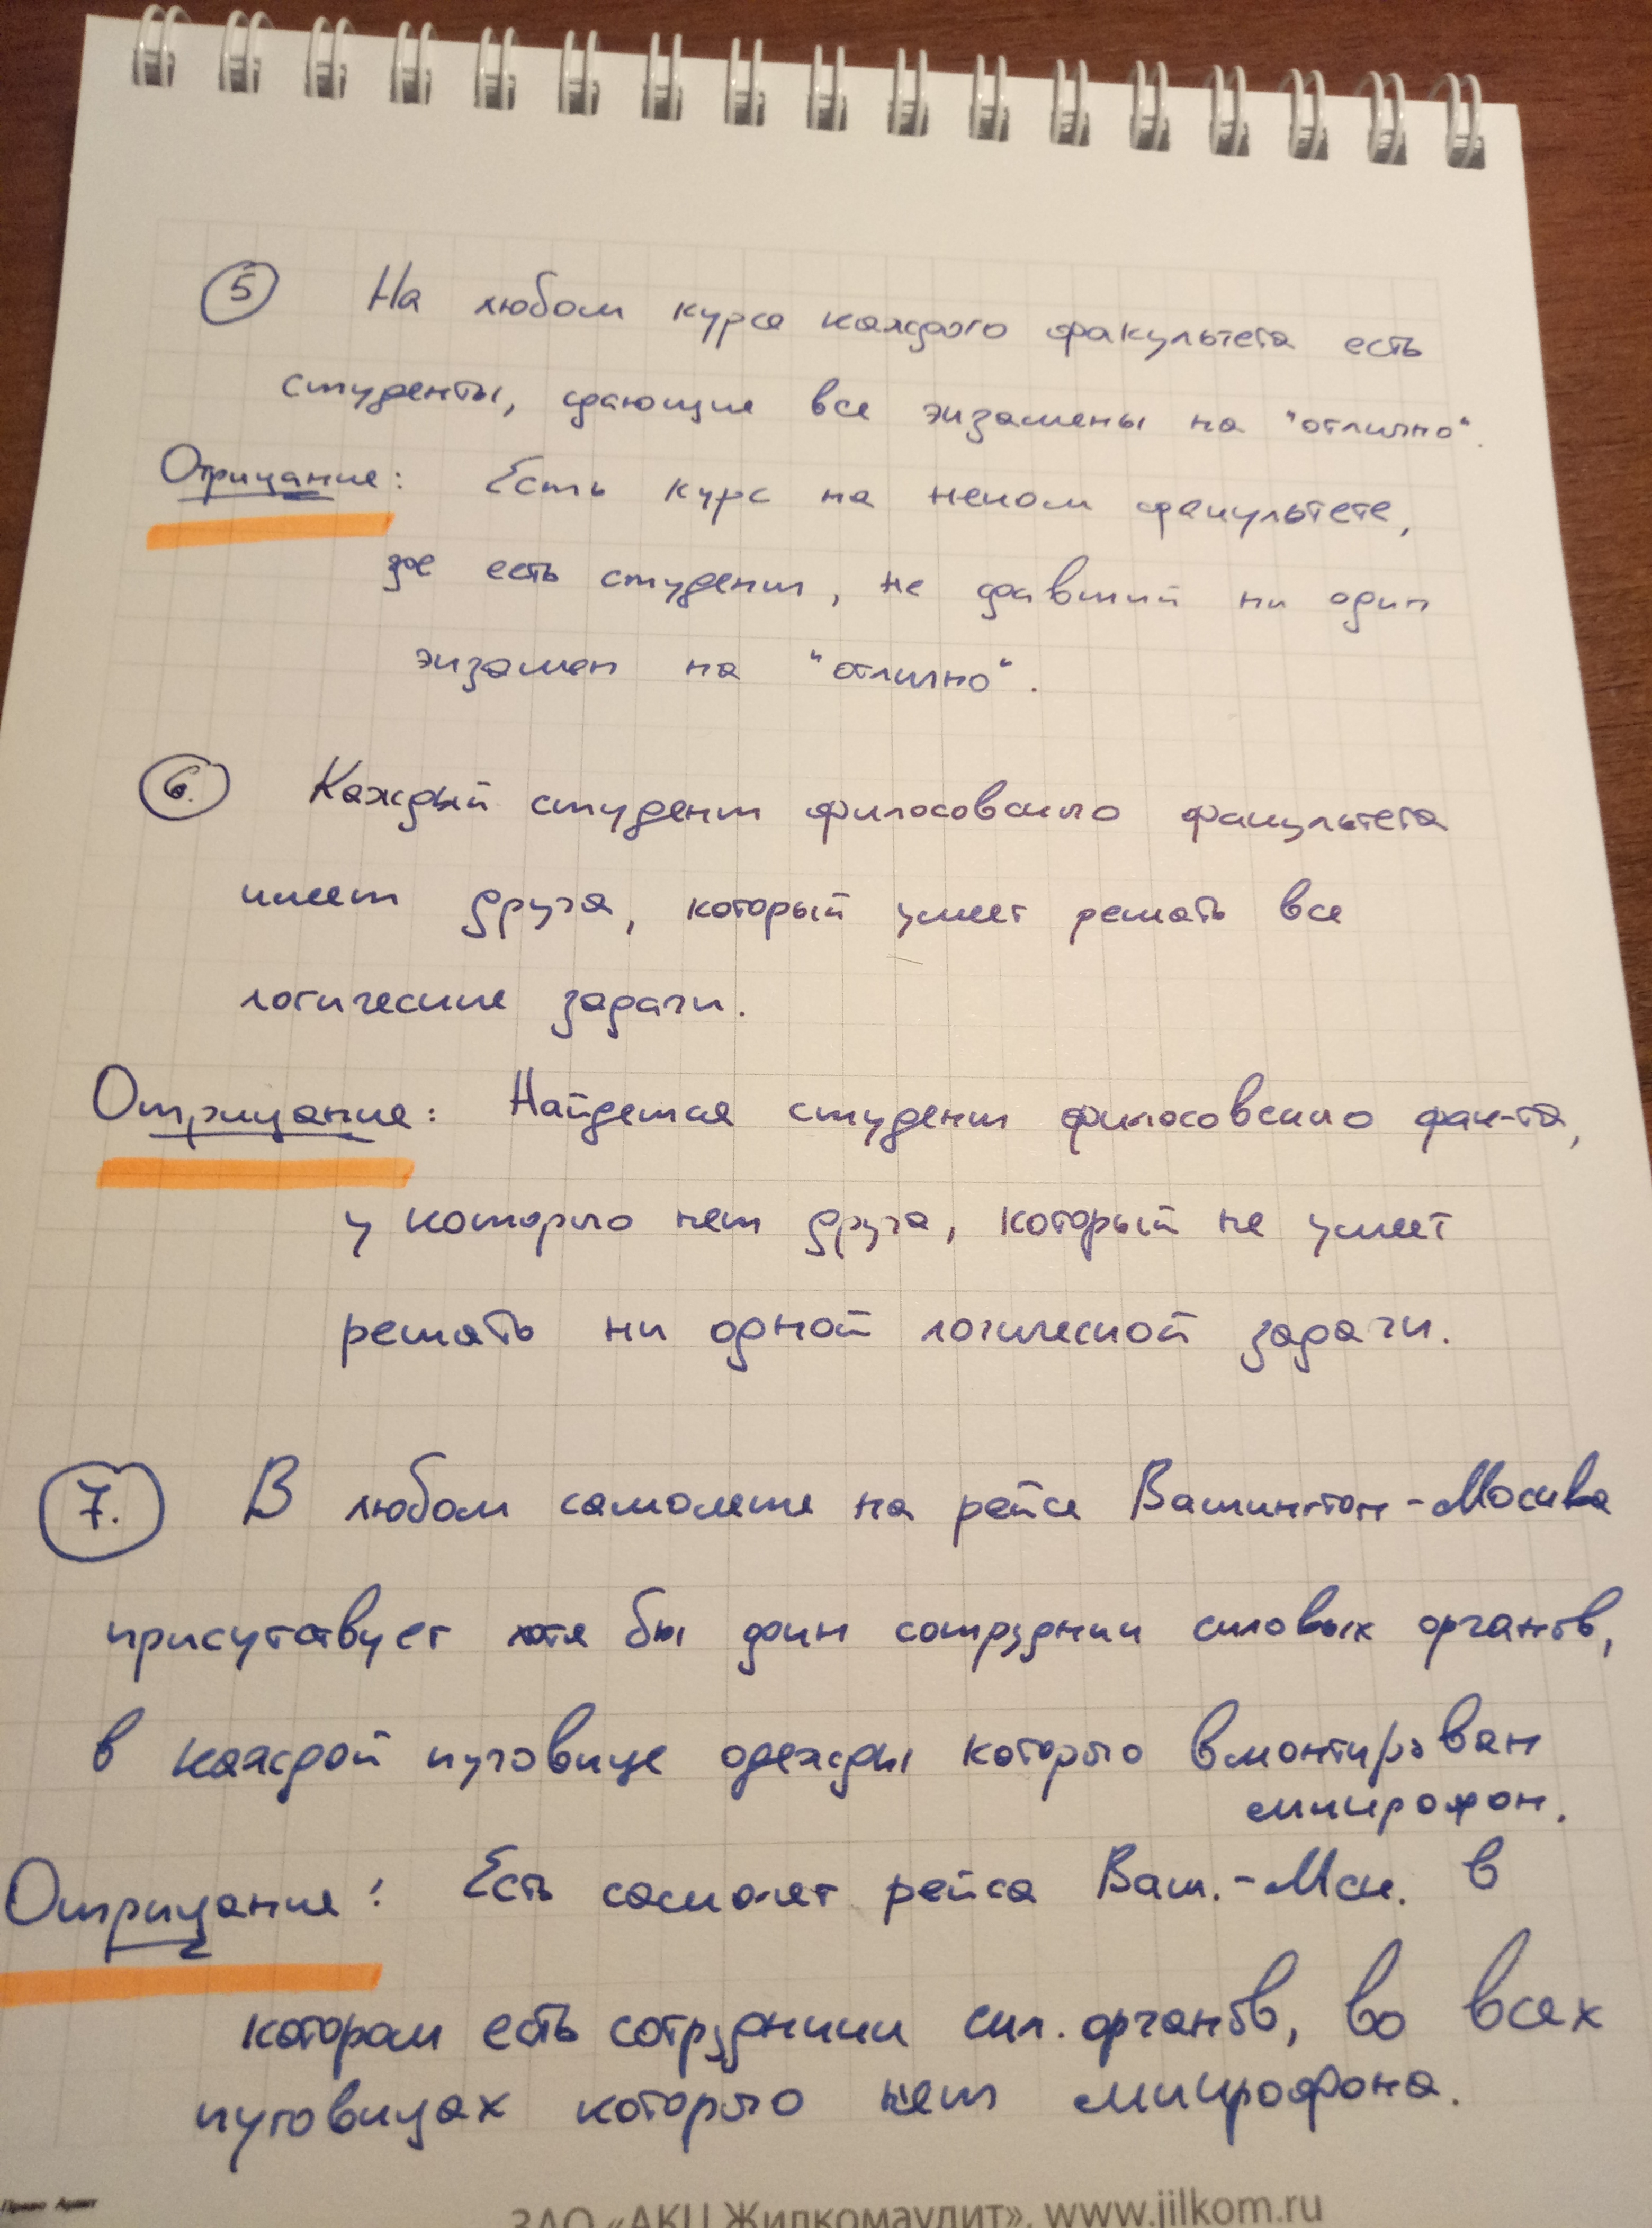 5 На любом курсе каждого факультета есть
студенты, сдающие все экзамены на "отлично".
Отрицание: Есть курс на неком факультете,
где есть студент, не сдавший ни один
экзамен на "отлично".
6. Каждый студент философского факультета
имеет друга, который умеет решать все
логические задачи.
Отрицание: Найдется студент философского фак-та,
у которого нет друга, который не умеет
решать ни одной логической задачи.
7. В любом самолете на рейсе Вашингтон-Москва
присутствует хотя бы один сотрудник силовых органов,
в каждой пуговице одежды которого вмонтирован
микрофон.
Отрицание: Есть самолет рейса Ваш.-Мск. в
котором есть сотрудники сил. органов, во всех
пуговицах которого нет микрофона.
ЗАО «АКЦ Жилкомаудит», www.jilkom.ru